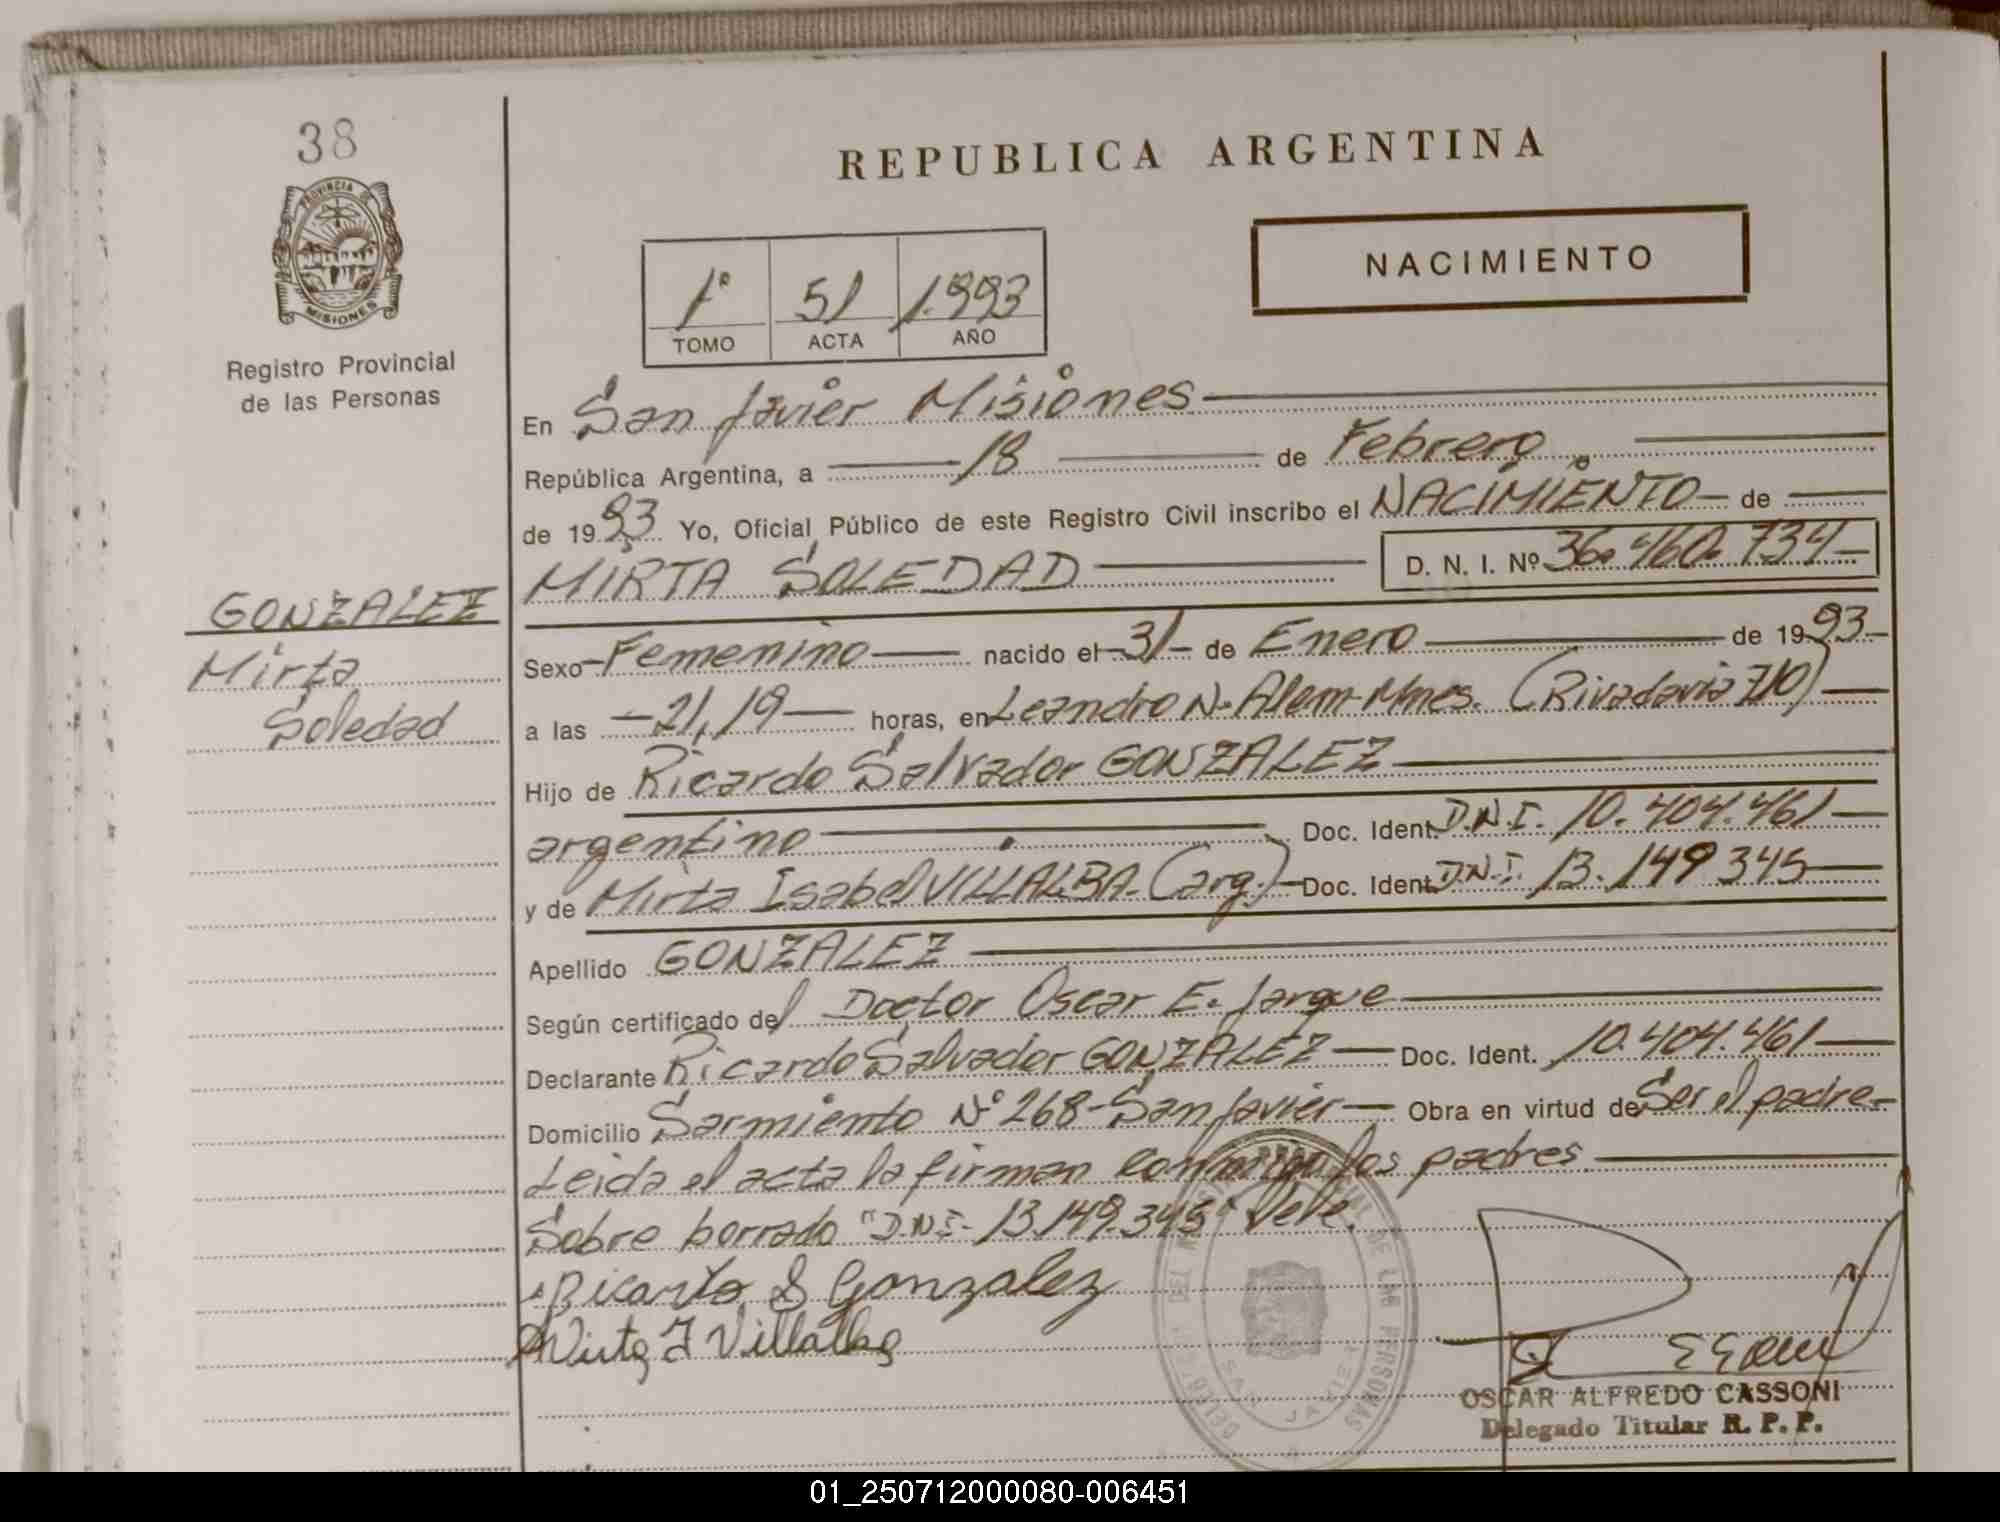 38
PROVINCIA DE
MISIONES
Registro Provincial
de las Personas
GONZALEZ
Mirta
Soledad
REPUBLICA ARGENTINA
NACIMIENTO
1° 51 1.993
TOMO ACTA AÑO
En San Javier Misiones
República Argentina, a 18 de Febrero
de 1993 Yo, Oficial Público de este Registro Civil inscribo el NACIMIENTO de
MIRTA SOLEDAD D. N. I. Nº 36.460.734
Sexo Femenino nacido el 31 de Enero de 1993
a las 21,19 horas, en Leandro N. Alem-Mnes. (Rivadavia 710)
Hijo de Ricardo Salvador GONZALEZ
argentino Doc. Ident. D.N.I. 10.404.461
y de Mirta Isabel VILLALBA (arg.) Doc. Ident. D.N.I. 13.149.345
Apellido GONZALEZ
Según certificado del Doctor Oscar E. Jarque
Declarante Ricardo Salvador GONZALEZ Doc. Ident. 10.404.461
Domicilio Sarmiento Nº 268-San Javier Obra en virtud de Ser el padre
Leida el acta la firman conmigo los padres
Sobre borrado "D.N.I. 13.149.345" Vale.
Ricardo S Gonzalez
Mirta I Villalba
DE LAS PERSONAS
SAN JAVIER
OSCAR ALFREDO CASSONI
Delegado Titular R. P. P.
01_250712000080-006451